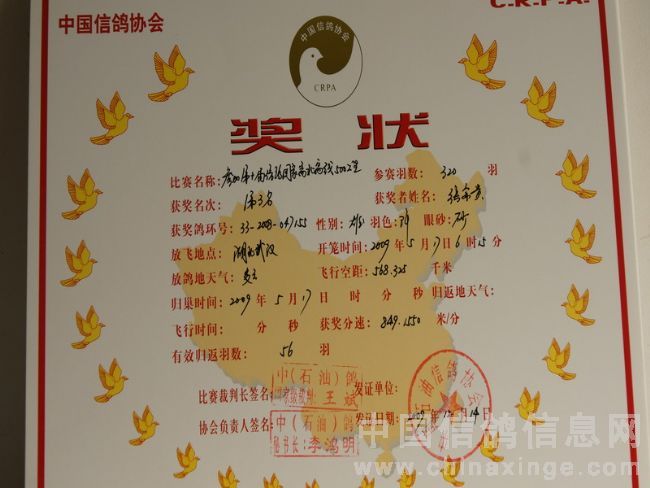 中国信鸽协会
C.R.P.A.
中国信鸽协会
CRPA
奖状
比赛名称: 500公里 参赛羽数: 320 羽
获奖名次: 第3名 获奖者姓名:
获奖鸽环号: 33-2008-047155 性别: 雄 羽色: 眼砂: 砂
放飞地点: 湖北武汉 开笼时间: 2009 年 5 月 17 日 6 时 15 分
放鸽地天气: 飞行空距: 568.325 千米
归巢时间: 2009 年 5 月 17 日 时 分 秒 归返地天气:
飞行时间: 分 秒 获奖分速: 849.1550 米/分
有效归返羽数: 56 羽
比赛裁判长签名: 中(石油)鸽 王斌 发证单位: 油信鸽协会
协会负责人签名: 中(石油)鸽 秘书长: 李鸿明 发证日期: 2009 年 12 月 14 日
中国信鸽信息网
www.chinaxinge.com